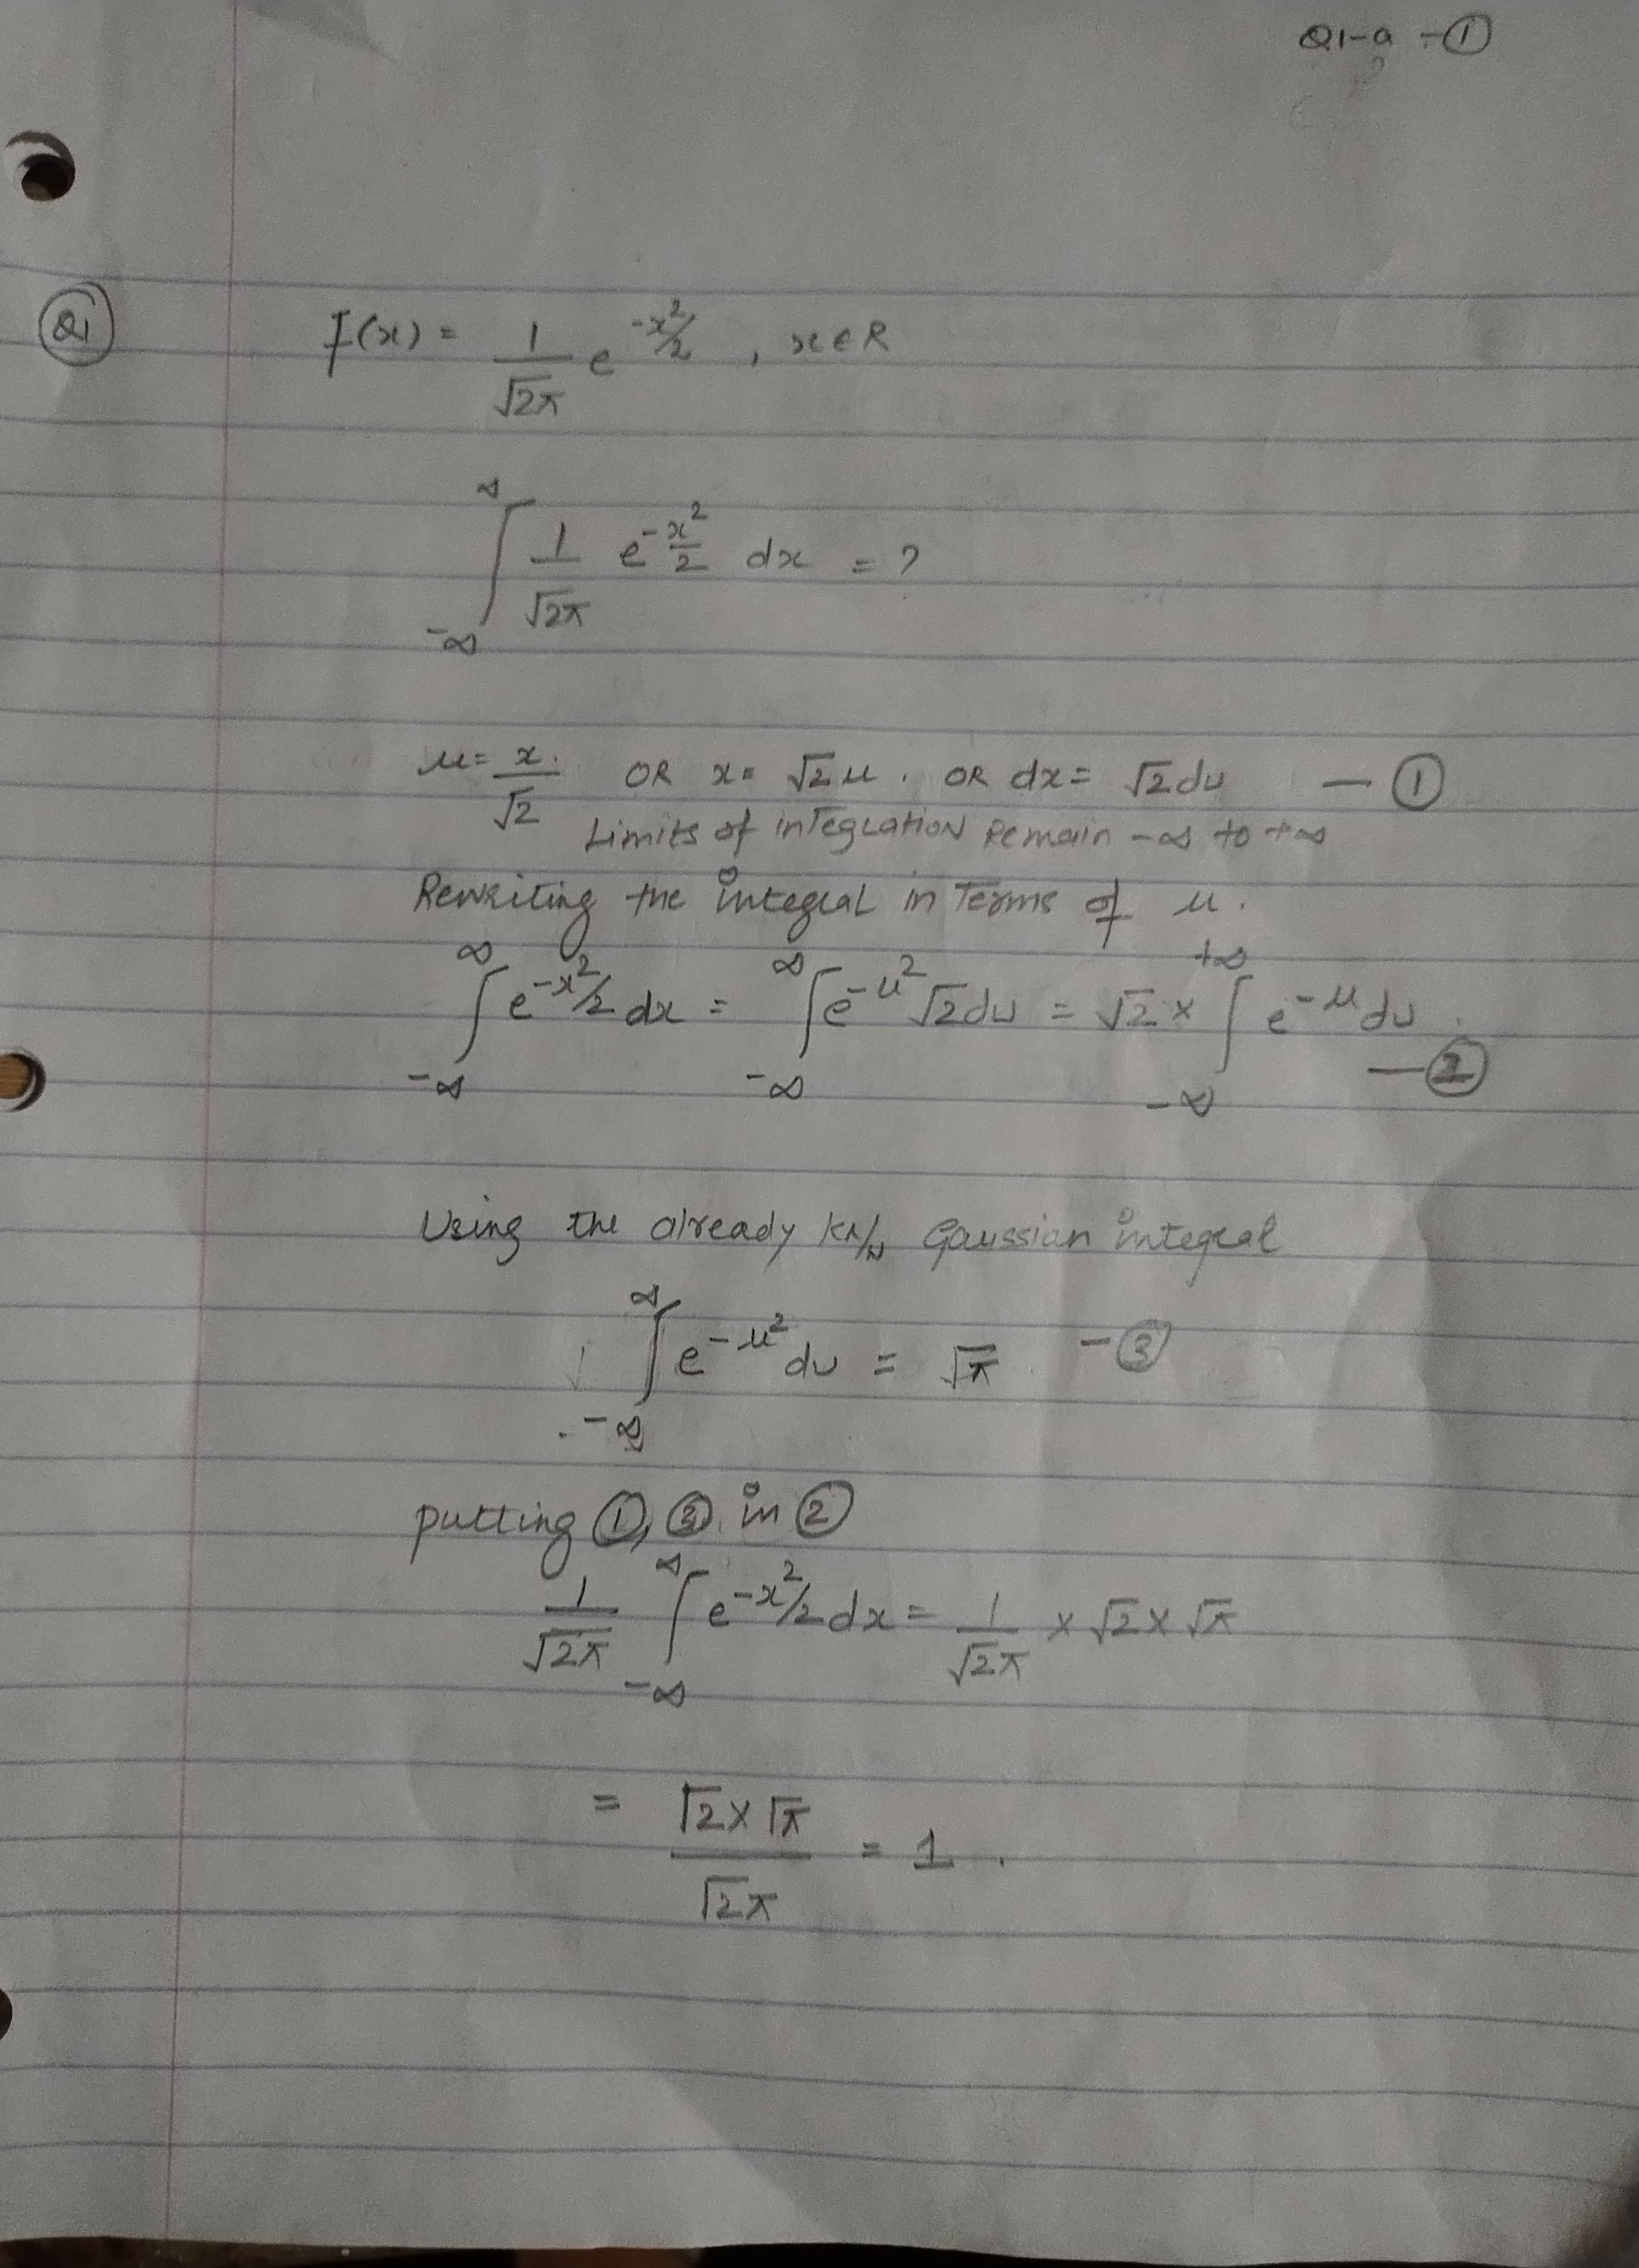 Q1-a -①
Q1
f(x) = 1/√2π e^-x²/2 , x∈R
∫_-∞^∞ 1/√2π e^-x²/2 dx = ?
u = x/√2 . OR x = √2 u . OR dx = √2 du — ①
Limits of integration remain -∞ to +∞
Rewriting the integral in Terms of u .
∫_-∞^∞ e^-x²/2 dx = ∫_-∞^∞ e^-u² √2 du = √2 × ∫_-∞^+∞ e^-u du . — ②
Using the already Gaussian integral
∫_-∞^∞ e^-u² du = √π — ③
putting ①, ③ in ②
1/√2π ∫_-∞^∞ e^-x²/2 dx = 1/√2π × √2 × √π
= √2 × √π / √2π = 1 .